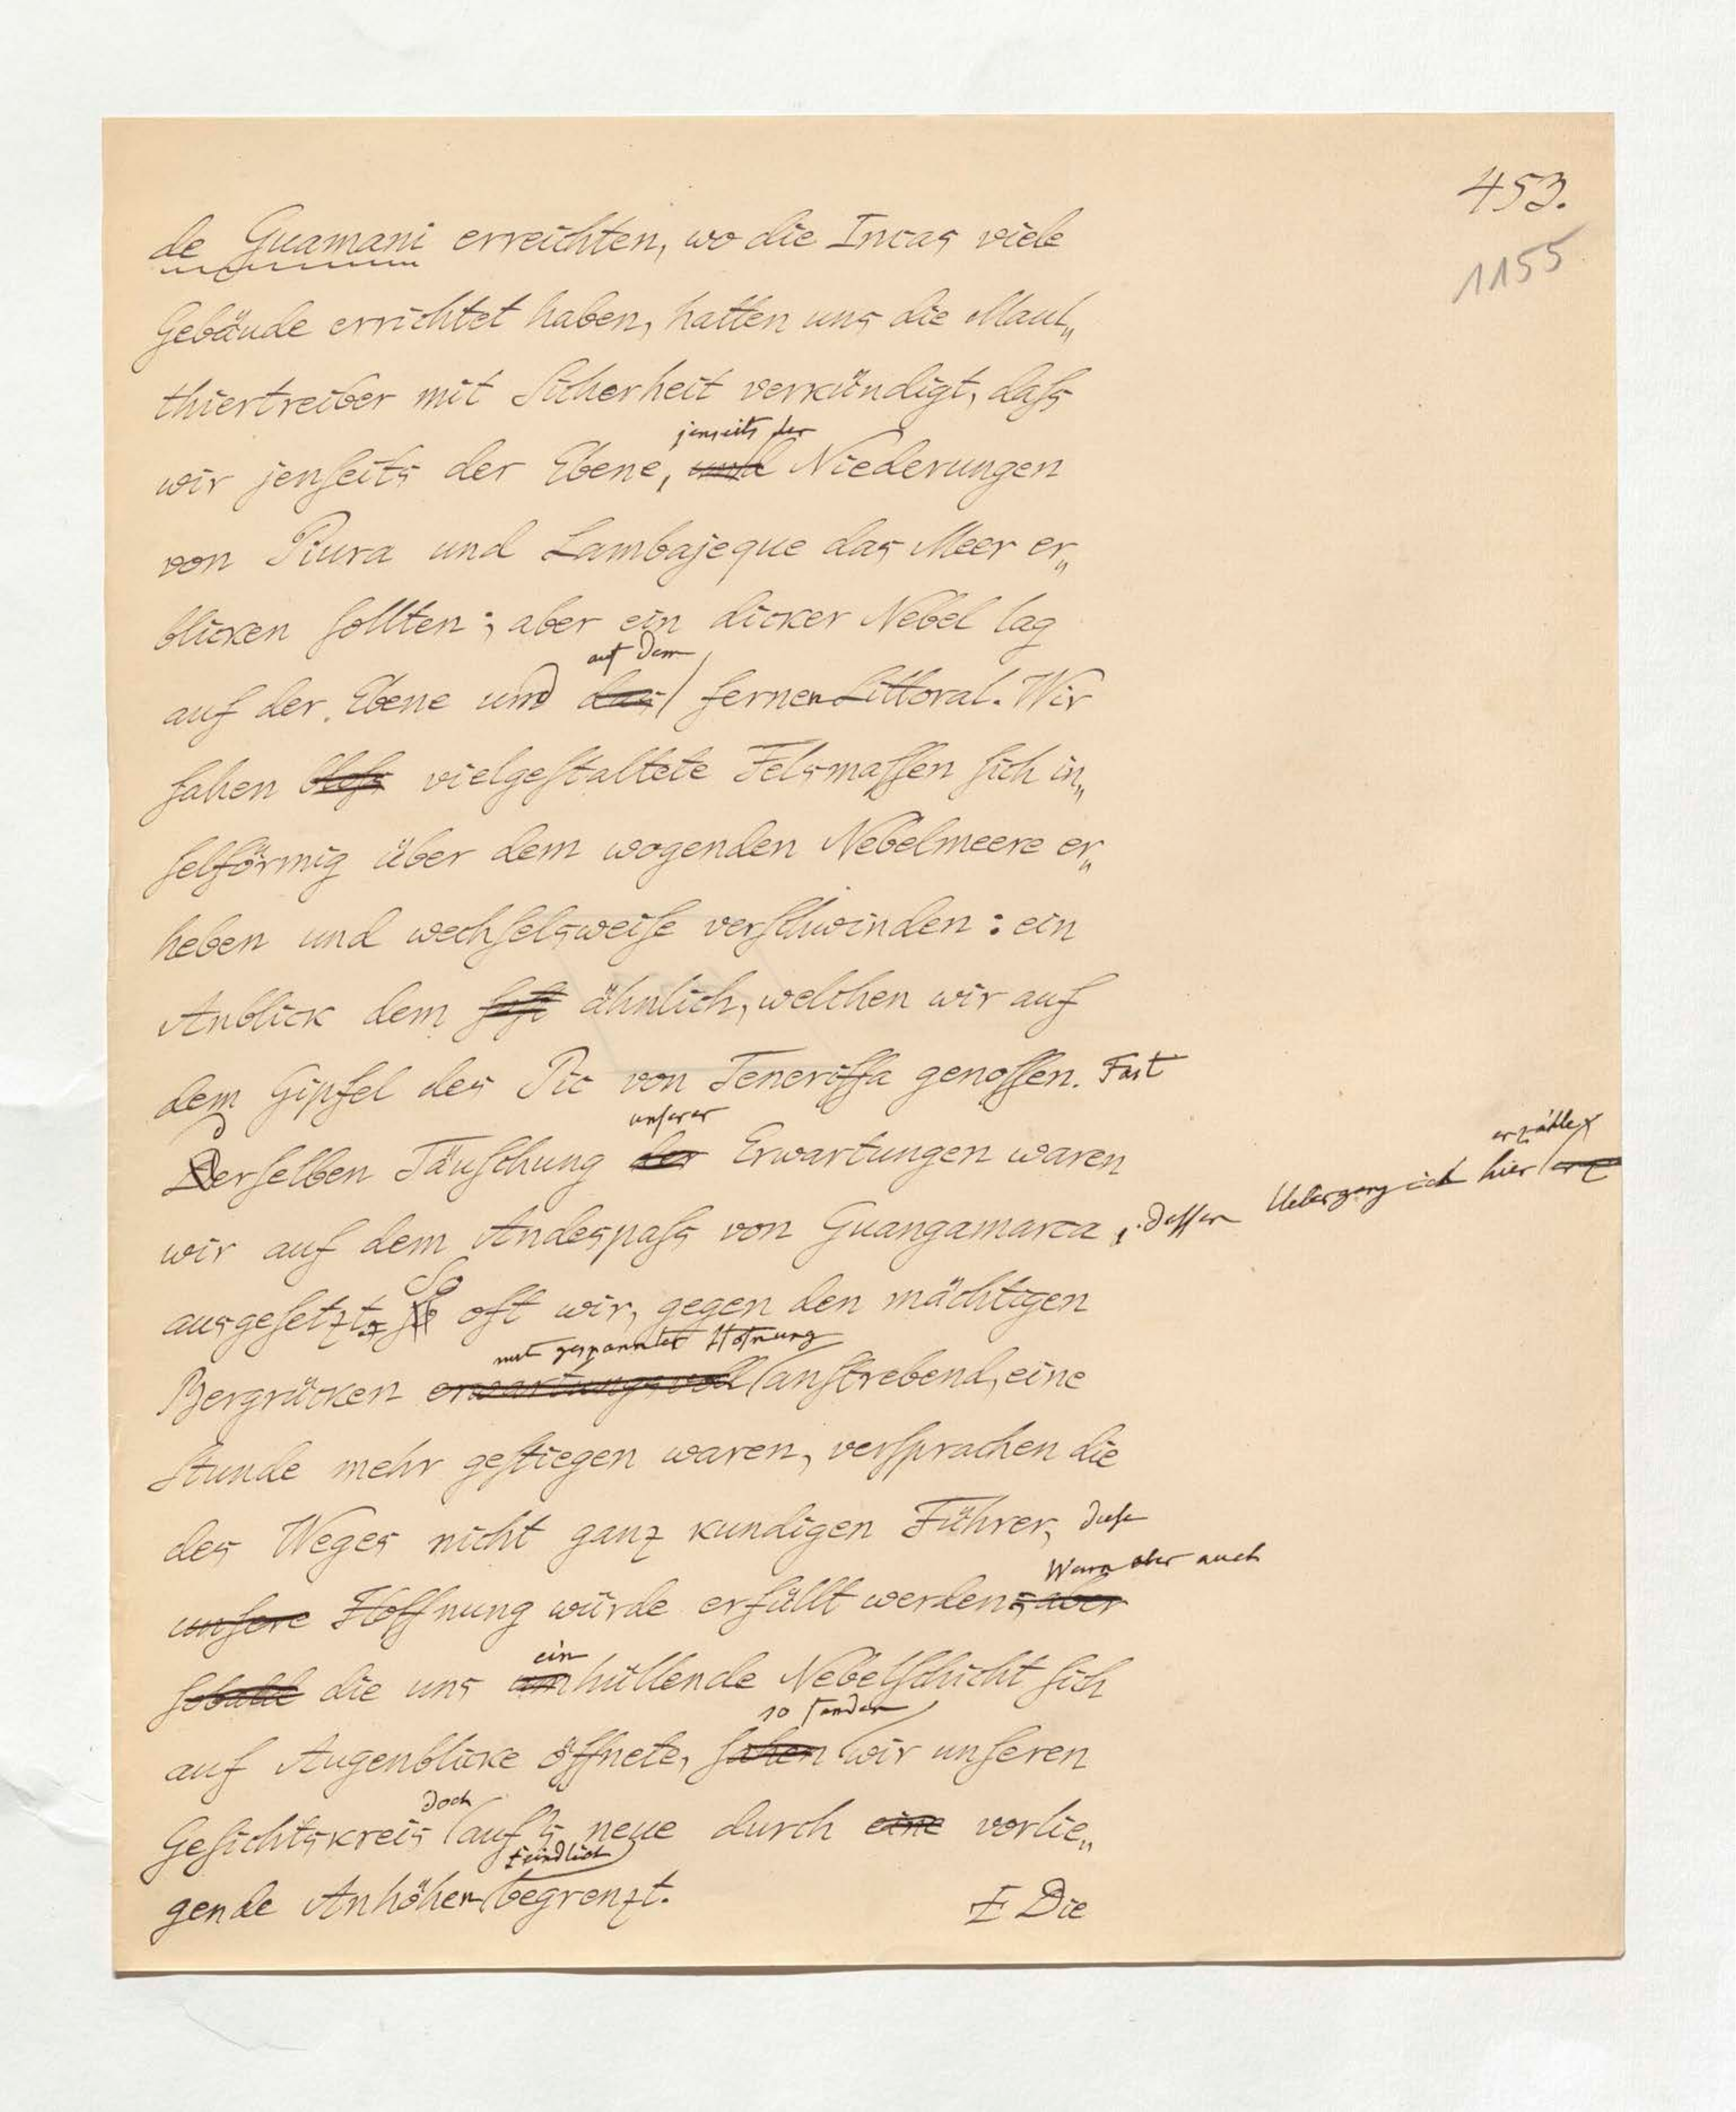 453.
1155
de Guamani erreichten, wo die Incas viele
Gebäude errichtet haben, hatten uns die Maul„
thiertreiber mit Sicherheit verkündigt, daſs
jenseits der
wir jenſeits der Ebene, und Niederungen
von Piura und Lambajeque das Meer er„
blicken ſollten; aber ein dicker Nebel lag
auf dem
auf der Ebene und das fernen Littoral. Wir
ſahen bloſs vielgeſtaltete Felsmaſſen ſich in„
ſelförmig über dem wogenden Nebelmeere er„
heben und wechſelsweiſe verſchwinden: ein
Anblick dem ähnlich, welchen wir auf
dem Gipfel des Pic von Teneriffa genoſſen. Fast
unserer
Derſelben Täuſchung der Erwartungen waren
erzähle,
wir auf dem Andespaſs von Guangamarca, deſſen Uebergang ich hier
So
ausgeſetzt. oft wir, gegen den mächtigen
mit gespannter Hofnung
Bergrücken erwartungsvoll anſtrebend, eine
Stunde mehr geſtiegen waren, verſprachen die
des Weges nicht ganz kundigen Führer, dieſe
Wenn aber auch
unſere Hoffnung würde erfüllt werden; aber
ein
ſobald die uns umhüllende Nebelſchicht ſich
so fanden
auf Augenblicke öffnete, ſahen wir unſeren
doch
Geſichtskreis auf's neue durch eine vorlie„
feindlich
gende Anhöhen begrenzt.
Die